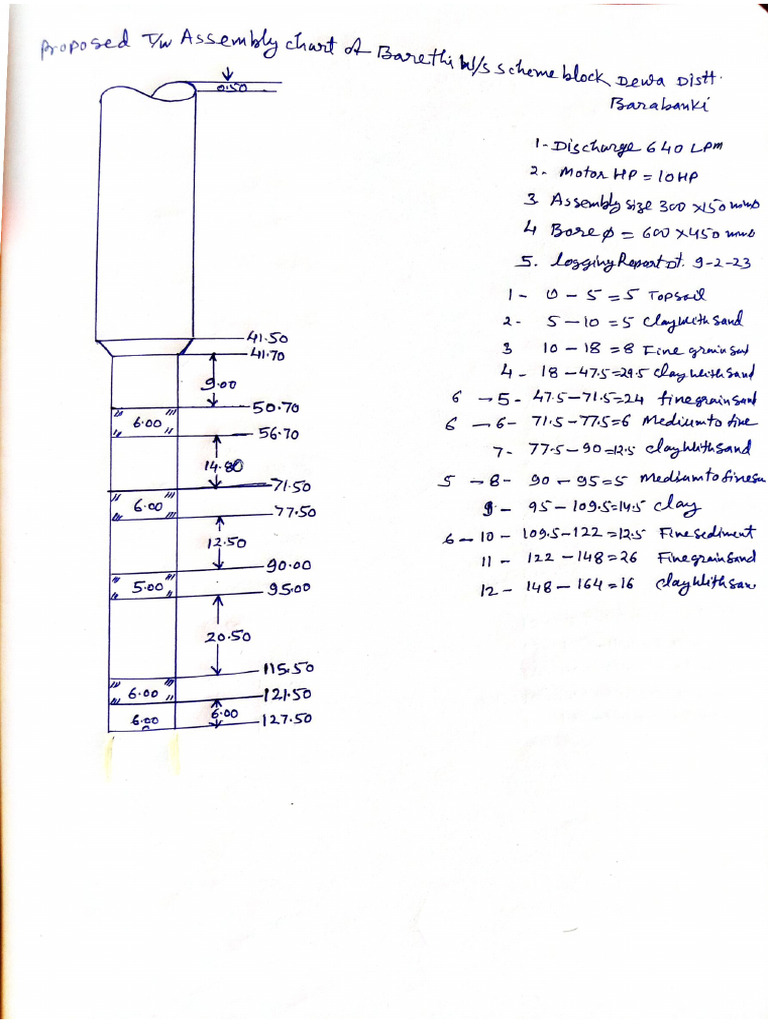 Proposed T/W Assembly chart of Barethi W/s scheme block Dewa Distt.
Barabanki
0.50
1- Discharge 640 LPM
2- Motor HP = 10HP
3 Assembly size 300 x150 mm
4 Bore φ = 600 x450 mm
5. Logging Report Dt. 9-2-23
1 - 0 - 5 = 5 Topsoil
2- 5 - 10 = 5 Clay With Sand
3 10 - 18 = 8 Fine grain
4 - 18 - 47.5 = 29.5 Clay With Sand
6 - 5 - 47.5 - 71.5 = 24 fine grain sand
6 - 6 - 71.5 - 77.5 = 6 Medium to fine
7- 77.5 - 90 = 12.5 Clay With Sand
5 - 8 - 90 - 95 = 5 Medium to fine
9 - 95 - 109.5 = 14.5 Clay
6 - 10 - 109.5 - 122 = 12.5 Fine sediment
11 - 122 - 148 = 26 Fine grain Sand
12 - 148 - 164 = 16 Clay With
41.50
41.70
9.00
50.70
6.00
56.70
14.80
71.50
6.00
77.50
12.50
90.00
5.00
95.00
20.50
115.50
6.00
121.50
6.00
6.00
127.50